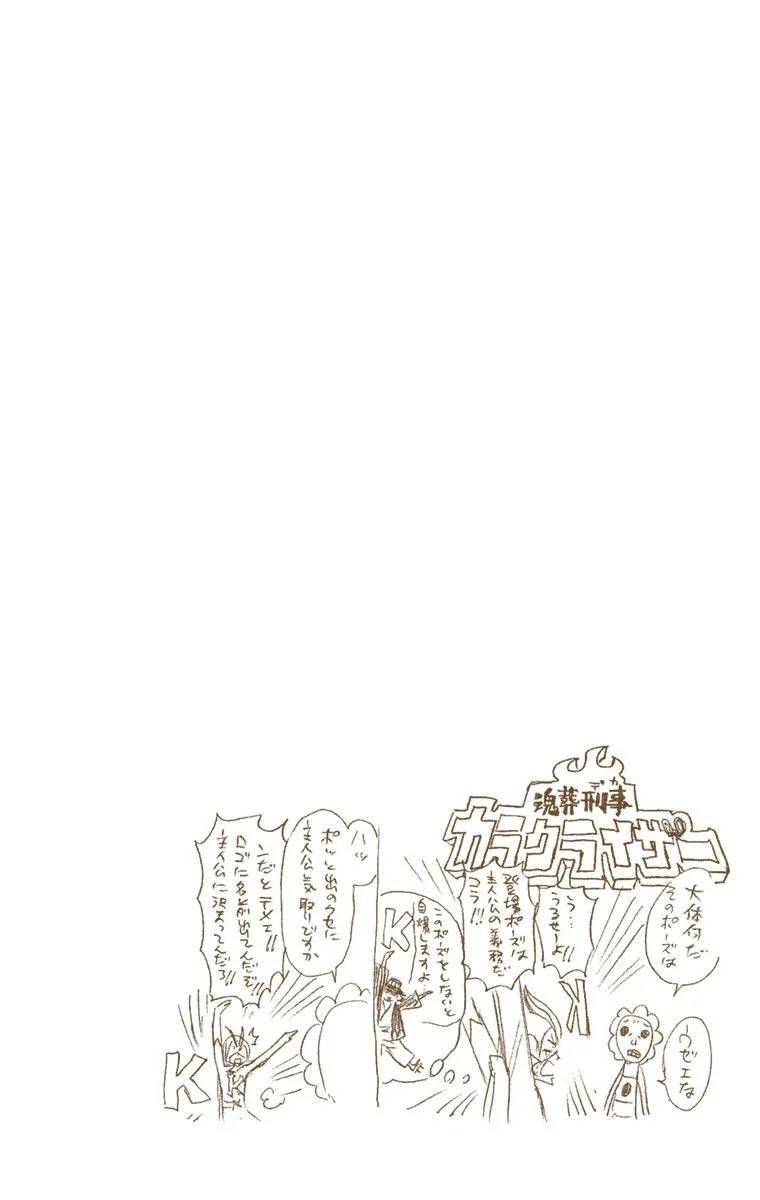 魂葬刑事
デカ
カラクライザー
大体何だ
そのポーズは
ウゼエな
う…
うるせーよ!!
登場ポーズは
主人公の義務だ
コラ!!!
K
このポーズをしないと
自爆しますよ…
K
ハッ
ポッと出のクセに
主人公気取りですか
んだとテメェ!!
ロゴに名前出てんだぞ!!
主人公に決まってんだろ!!
K